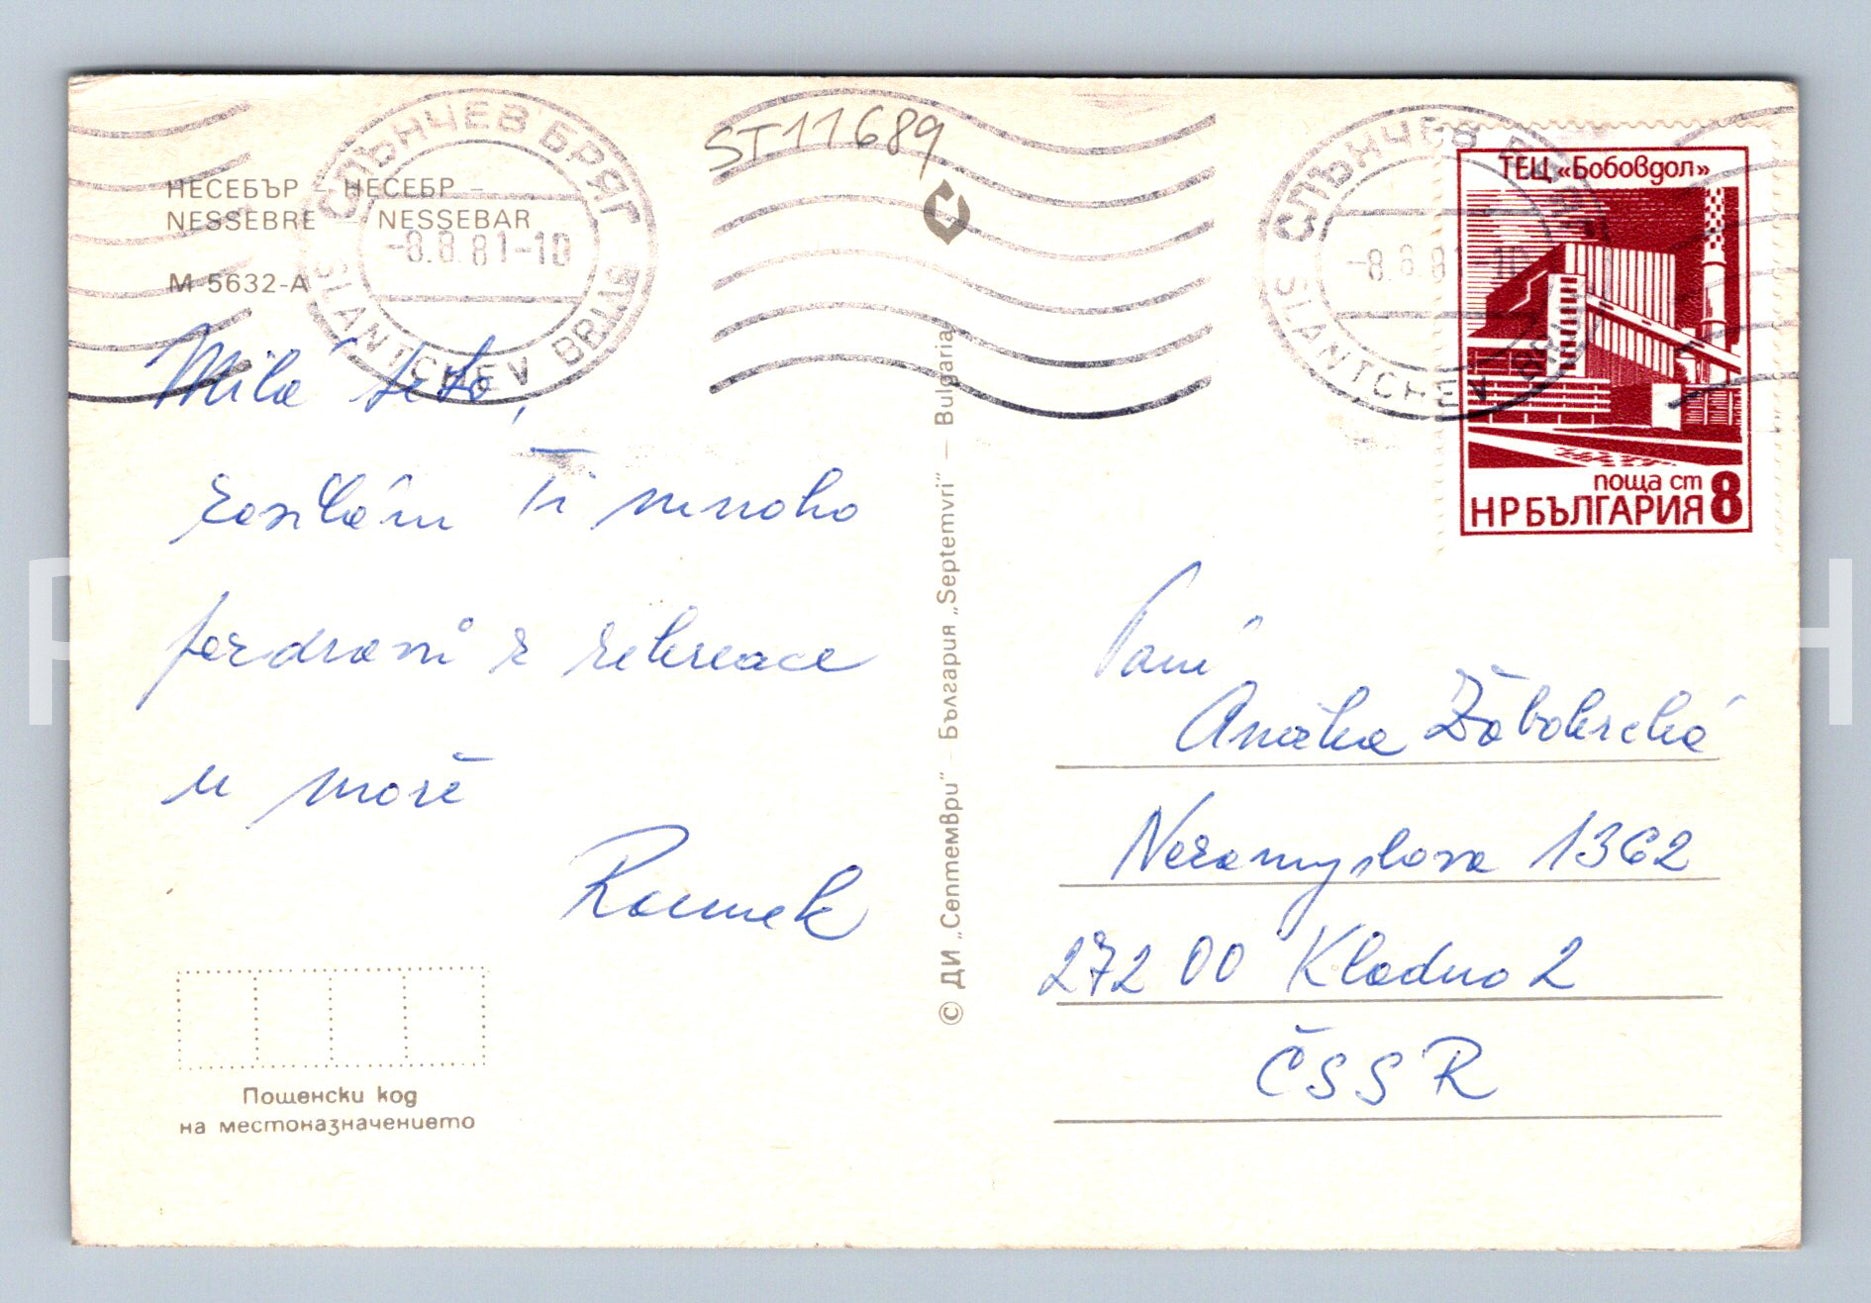 ST11689
СЛЪНЧЕВ БРЯГ
-8.8.81-10
SLANTCHEV BRIAG
НЕСЕБЪР - НЕСЕБР -
NESSEBRE NESSEBAR
М 5632-А
Milá teto,
zasílám Ti mnoho
pozdravů z rekreace
u moře
Radek
Пощенски код
на местоназначението
© ДИ „Септември" - България „Septemvri" - Bulgaria
СЛЪНЧЕВ
-8.8.81-10
SLANTCHEV
ТЕЦ «Бобовдол»
поща ст 8
НР БЪЛГАРИЯ
Paní
Anežka
Nezamyslova 1362
272 00 Kladno 2
ČSSR